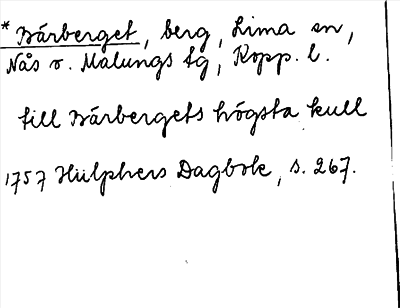 * Bårberget, berg, Lima sn,
Nås o. Malungs tg, Kopp. l.
till Bårbergets högsta kull
1757 Hülphers Dagbok, s. 267.